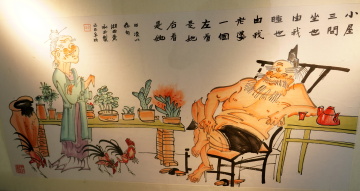 小屋
三間
坐也
由我
睡也
由我
老婆
一個
左看
是她
右看
是她